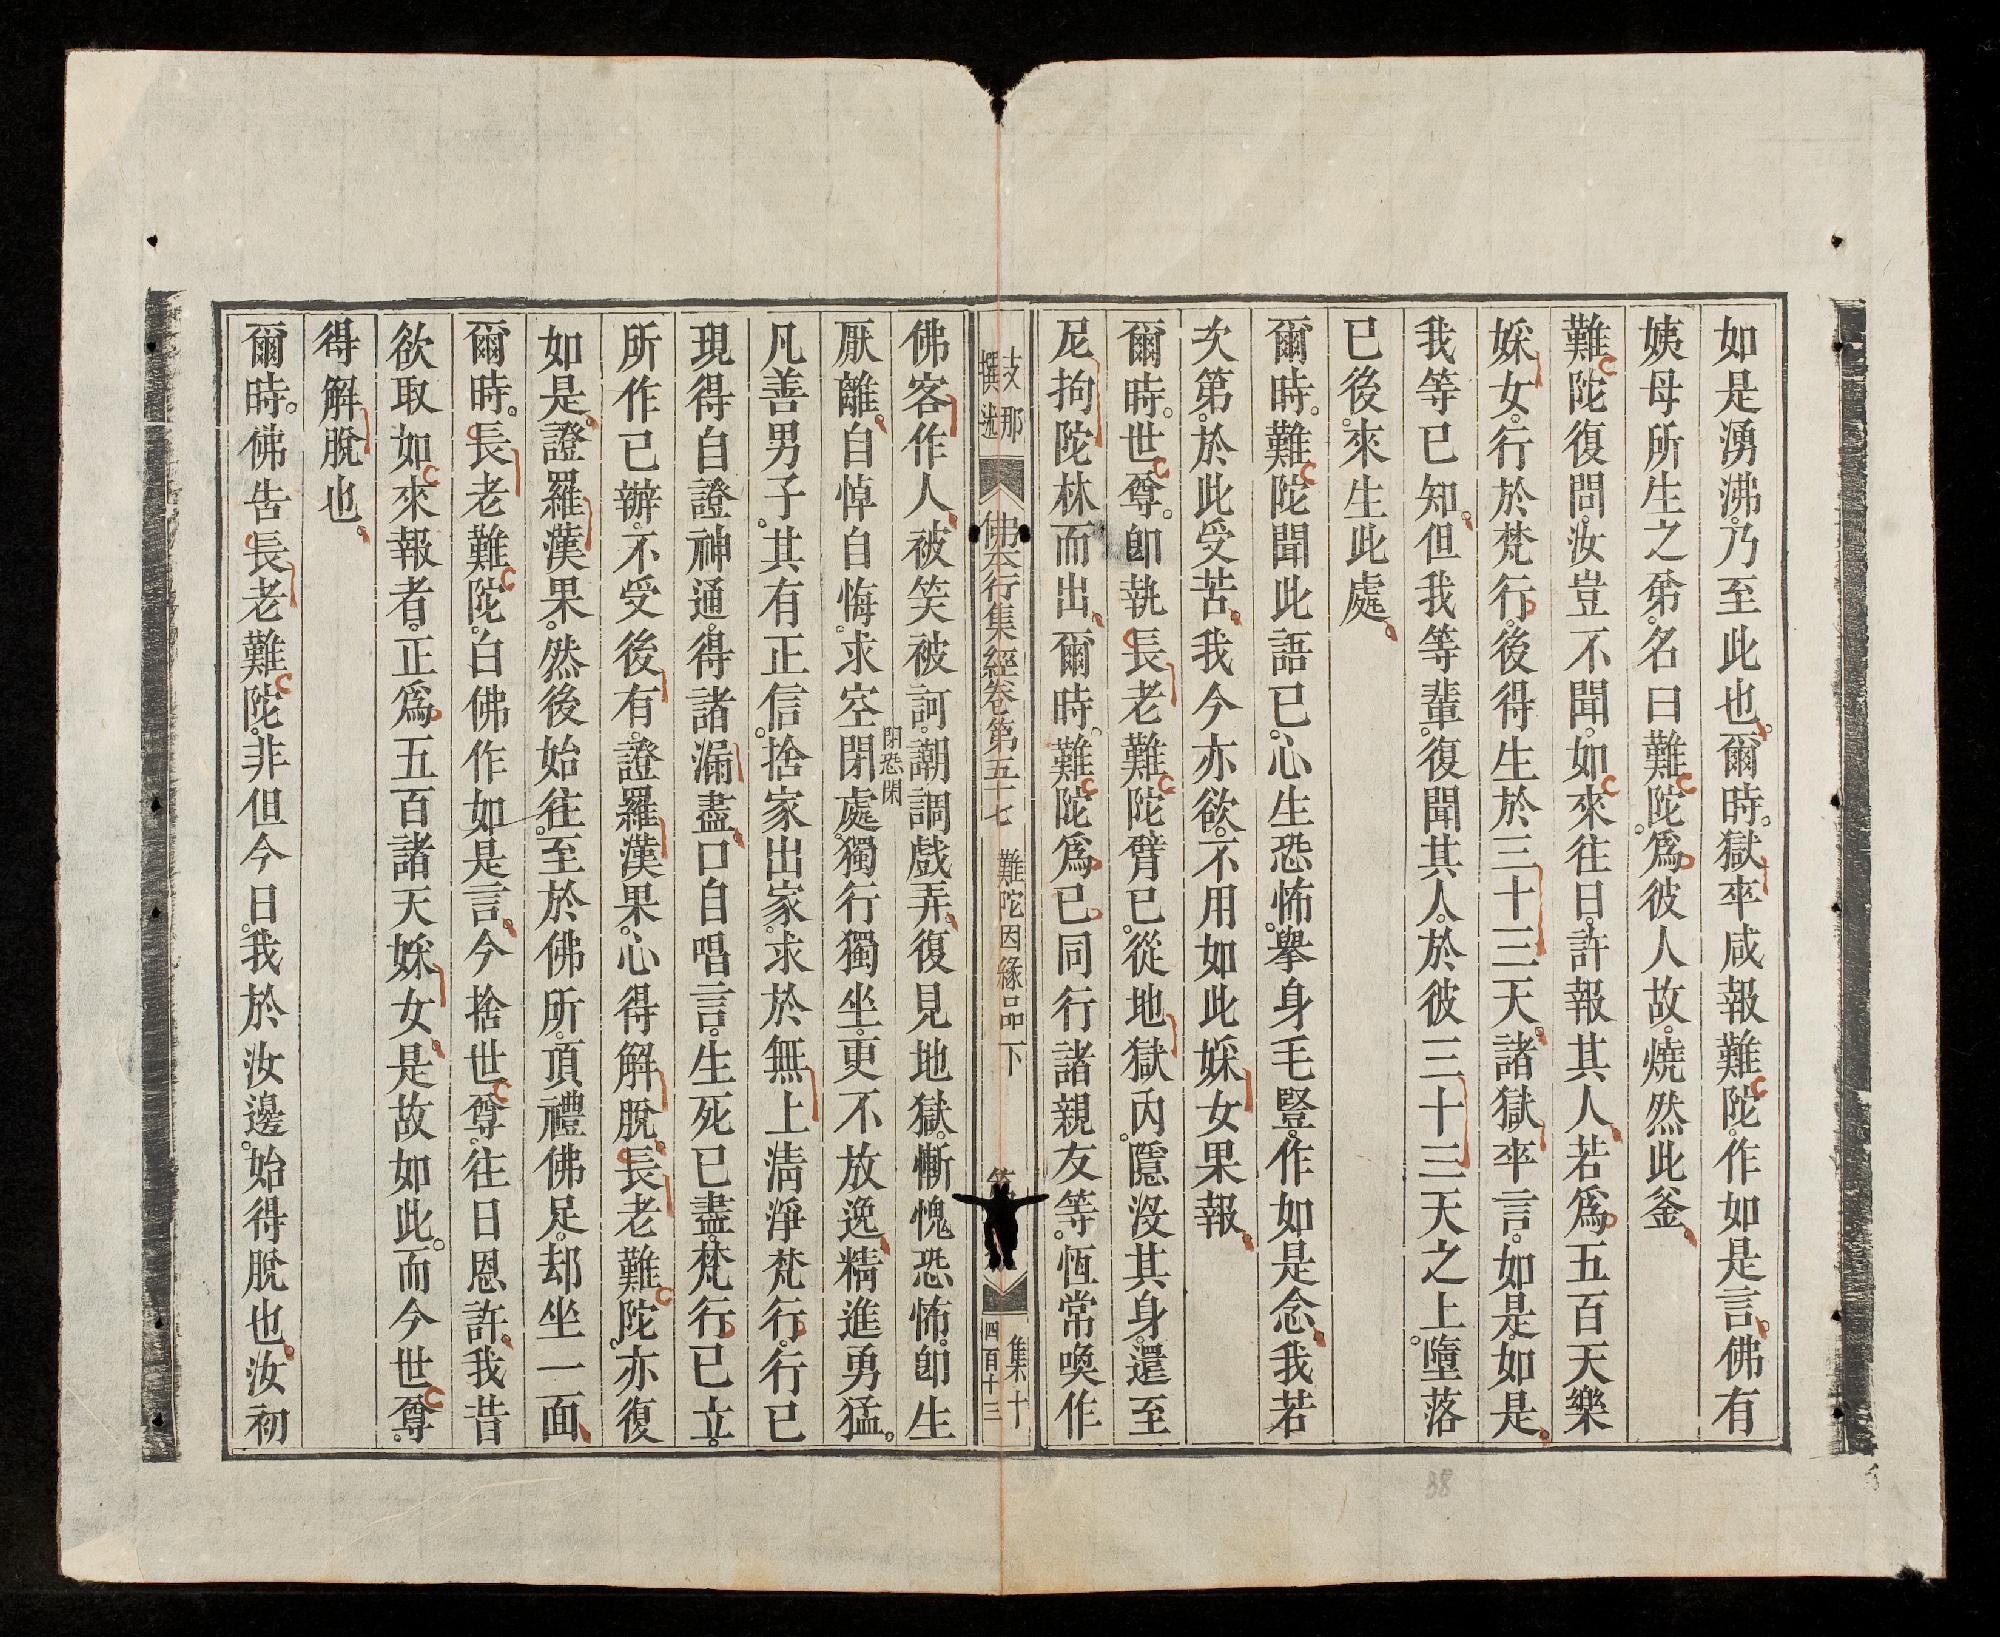 如是湧沸。乃至此也。爾時。獄卒咸報難陀。作如是言。佛有
姨母所生之弟。名曰難陀。爲彼人故。燒然此釜。
難陀復問。汝豈不聞。如來往日。許報其人。若爲五百天樂
婇女。行於梵行。後得生於三十三天。諸獄卒言。如是。如是。
我等已知。但我等輩。復聞其人。於彼三十三天之上。墮落
已後。來生此處。
爾時。難陀聞此語已。心生恐怖。擧身毛豎。作如是念。我若
次第。於此受苦。我今亦欲。不用如此婇女果報。
爾時。世尊。卽執長老難陀臂已。從地獄內。隱沒其身。還至
尼拘陀林而出。爾時。難陀爲已。同行諸親友等。恆常喚作
支那撰述
佛本行集經卷第五十七 難陀因緣品下
集十
四百十三
佛客作人。被笑被訶。謿調戲弄。復見地獄。慚愧恐怖。卽生
厭離。自悼自悔。求空閉處。獨行獨坐。更不放逸。精進勇猛。
閉恐閑
凡善男子。其有正信。捨家出家。求於無上淸淨梵行。行已
現得自證神通。得諸漏盡。口自唱言。生死已盡。梵行已立。
所作已辦。不受後有。證羅漢果。心得解脫。長老難陀。亦復
如是。證羅漢果。然後始往。至於佛所。頂禮佛足。却坐一面。
爾時。長老難陀。白佛作如是言。今捨世尊。往日恩許。我昔
欲取如來報者。正爲五百諸天婇女。是故如此。而今世尊。
得解脫也。
爾時。佛告長老難陀。非但今日。我於汝邊。始得脫也。汝初
88